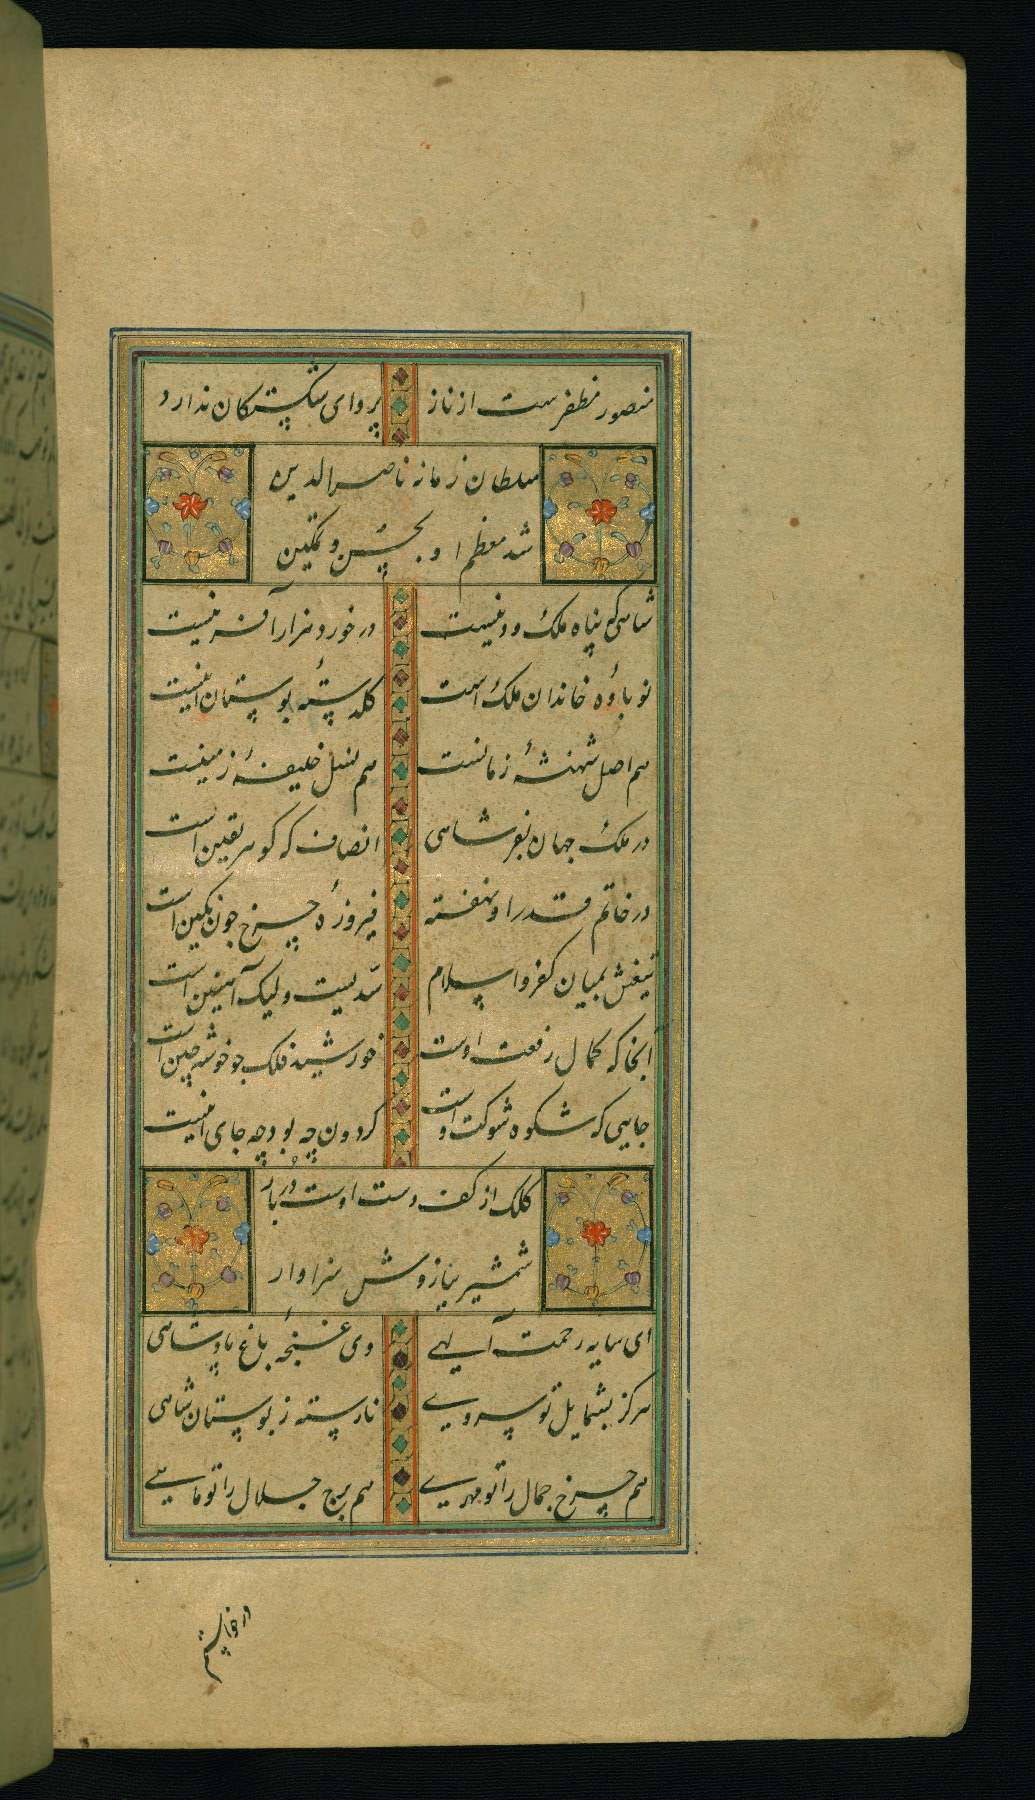 منصور مظفرست از ناز پروای شکستکان ندارد
سلطان زمانه ناصر الدین
شد معظم او بحسن و تمکین
شاهی که پناه ملک و دینست در خورد هزار آفرینست
نوباؤه خاندان ملک است کلدستهٔ بوستان اینست
هم اصل شهنشهٔ زمانست هم نسل خلیفهٔ زمینست
در ملک جهان بفر شاهی انصاف که کوهر یقین است
در خاتم قدر او نهفته فیروزهٔ چرخ چون نکین است
تیغش بمیان کفر و اسلام سدیست ولیک آهنین است
آنجا که کمال رفعت اوست خورشید فلک چو خوشه چین است
جایی که شکوه شوکت اوست کردون چه بود چه جای اینست
کلک از کف دست اوست دُربار
شمشیر ببازوش سزاوار
ای سایه رحمت آلهی وی غنچهٔ باغ پادشاهی
هرکز بشمایل تو سروی نارسته ز بوستان شاهی
هم چرخ جمال را تو مهری هم برج جلال را تو ماهی